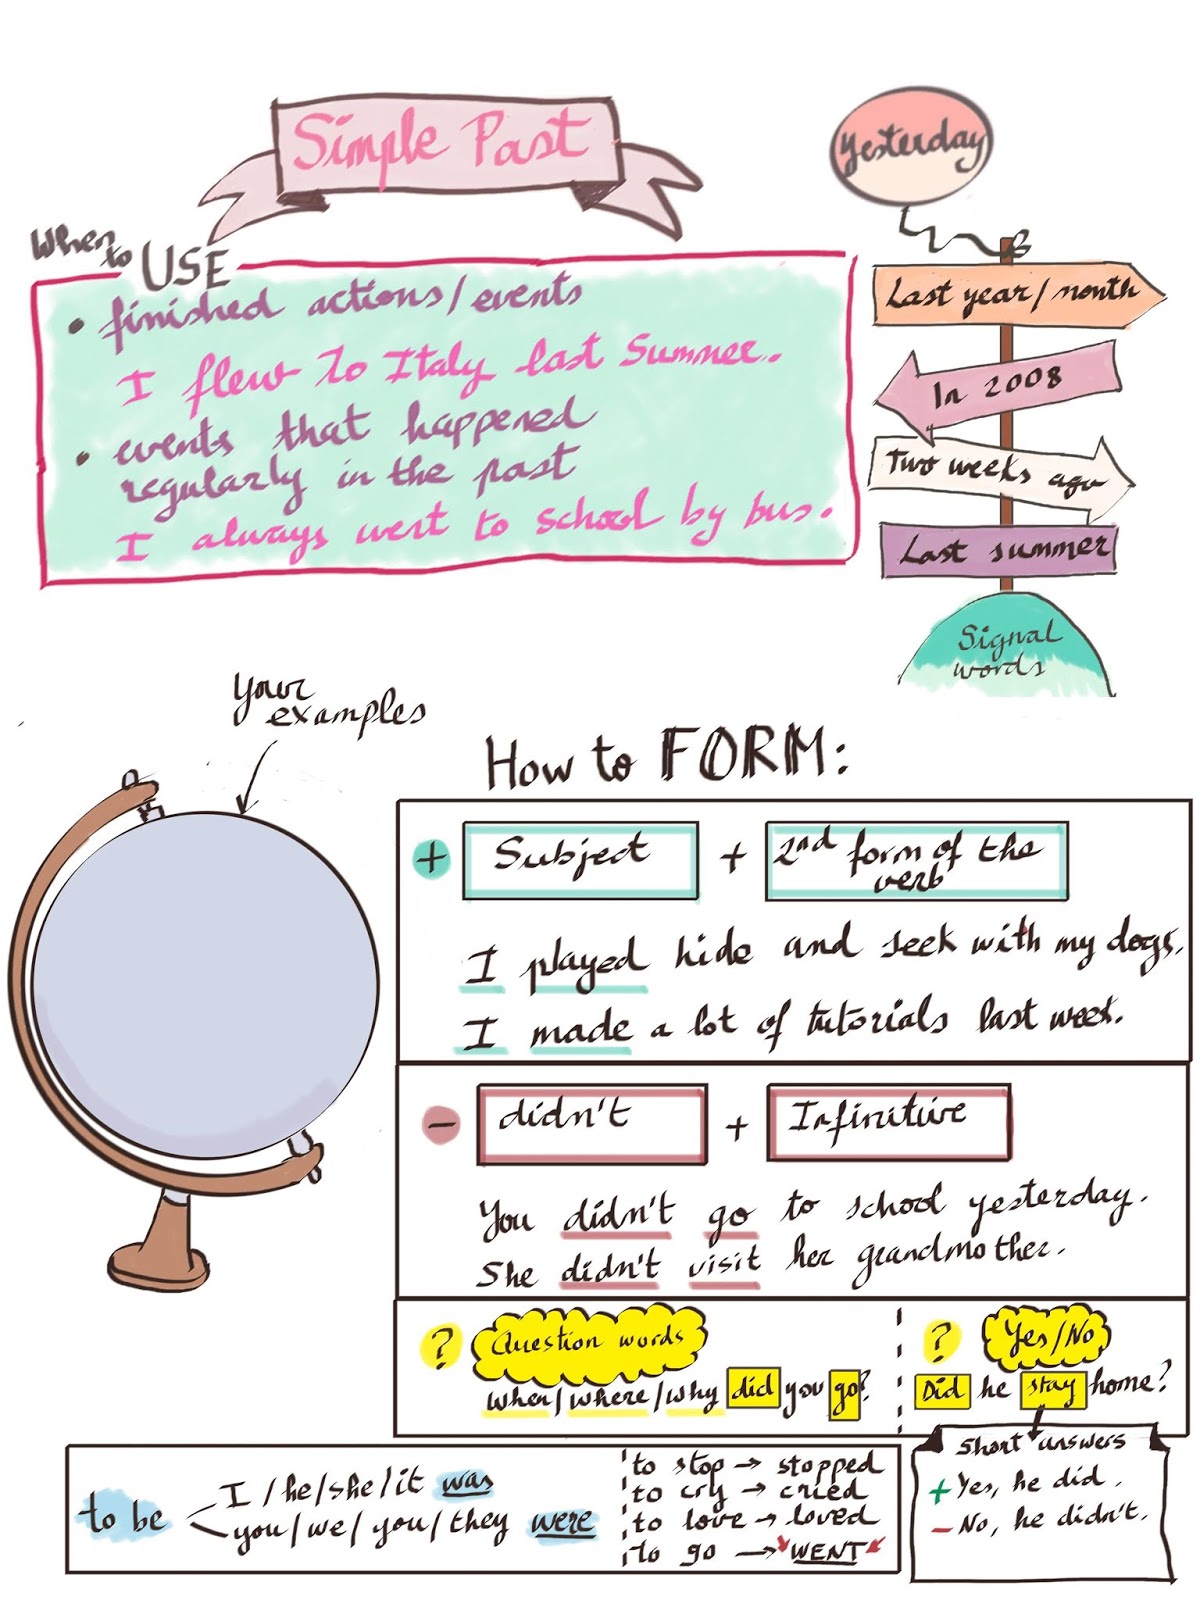 Simple Past
Yesterday
When to USE
• finished actions/events
I flew to Italy last summer.
• events that happened
regularly in the past
I always went to school by bus.
Last year/month
In 2008
Two weeks ago
Last summer
Signal
words
Your
examples
How to FORM:
+ Subject + 2nd form of the
verb
I played hide and seek with my dogs.
I made a lot of tutorials last week.
- didn't + Infinitive
You didn't go to school yesterday.
She didn't visit her grandmother.
? Question words
when/where/why did you go?
? Yes/No
Did he stay home?
Short answers
+ Yes, he did.
- No, he didn't.
to be
I/he/she/it was
you/we/you/they were
to stop → stopped
to cry → cried
to love → loved
to go → WENT